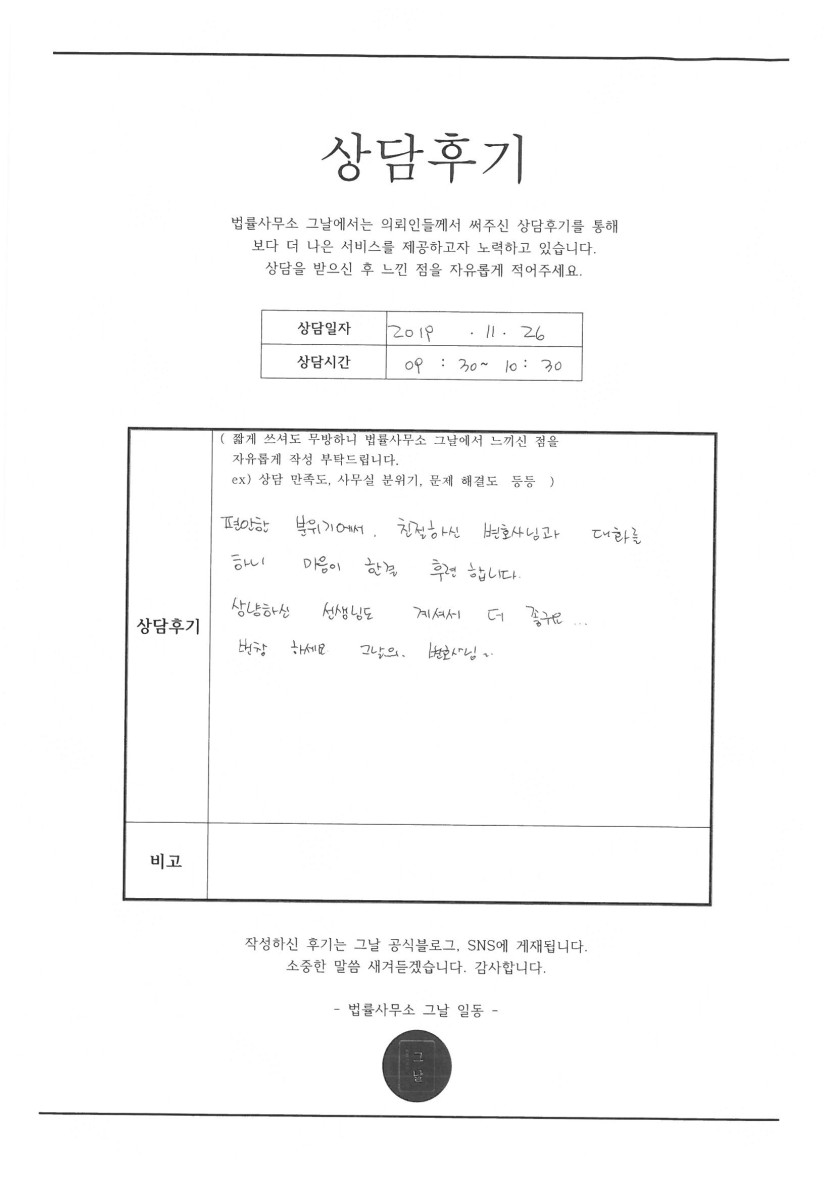 상담후기
법률사무소 그날에서는 의뢰인들께서 써주신 상담후기를 통해
보다 더 나은 서비스를 제공하고자 노력하고 있습니다.
상담을 받으신 후 느낀 점을 자유롭게 적어주세요.
상담일자 2019 . 11 . 26
상담시간 09 : 30 ~ 10 : 30
( 짧게 쓰셔도 무방하니 법률사무소 그날에서 느끼신 점을
자유롭게 작성 부탁드립니다.
ex) 상담 만족도, 사무실 분위기, 문제 해결도 등등 )
편안한 분위기에서, 친절하신 변호사님과 대화를
하니 마음이 한결 후련 합니다.
상냥하신 선생님도 계셔서 더 좋구요 ...
상담후기
번창 하세요 그날의. 변호사님..
비고
작성하신 후기는 그날 공식블로그, SNS에 게재됩니다.
소중한 말씀 새겨듣겠습니다. 감사합니다.
- 법률사무소 그날 일동 -
그날